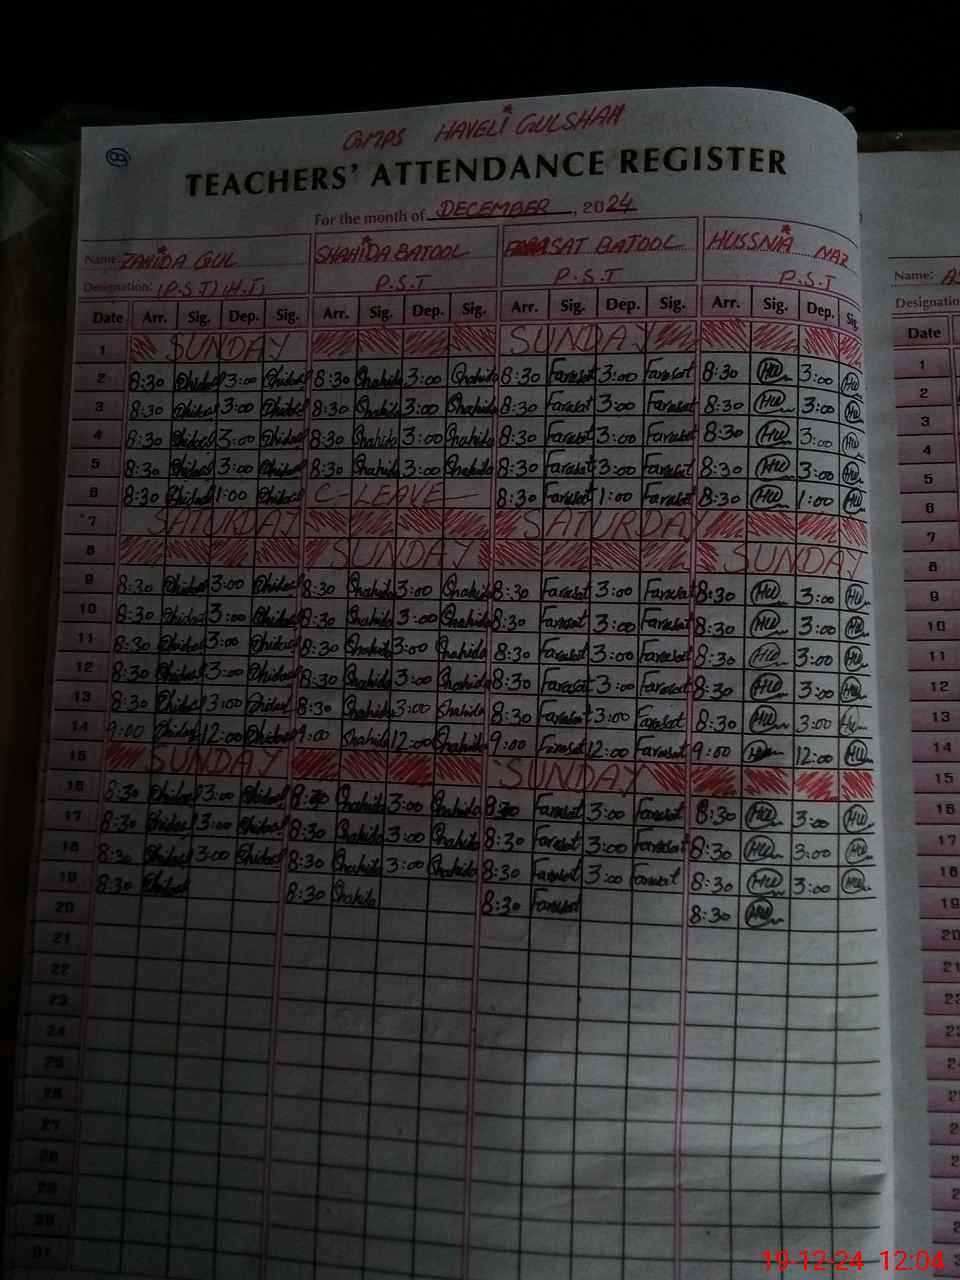 9
GMPS HAVELI GULSHAH
TEACHERS' ATTENDANCE REGISTER
For the month of DECEMBER, 2024
Name: ZAHIDA GUL SHAHIDA BATOOL FARASAT BATOOL HUSSNIA NAZ Name:
Designation: (P.S.T) (H.T) P.S.T P.S.T P.S.T
Date Arr. Sig. Dep. Sig. Arr. Sig. Dep. Sig. Arr. Sig. Dep. Sig. Arr. Sig. Dep. Sig. Date
1 SUNDAY SUNDAY 1
2 8:30 3:00 8:30 Shahida 3:00 Shahida 8:30 Farasat 3:00 Farasat 8:30 HU 3:00 HU 2
3 8:30 3:00 8:30 Shahida 3:00 Shahida 8:30 Farasat 3:00 Farasat 8:30 HU 3:00 HU 3
4 8:30 3:00 8:30 Shahida 3:00 Shahida 8:30 Farasat 3:00 Farasat 8:30 HU 3:00 HU 4
5 8:30 3:00 8:30 Shahida 3:00 Shahida 8:30 Farasat 3:00 Farasat 8:30 HU 3:00 HU 5
6 8:30 1:00 C-LEAVE 8:30 Farasat 1:00 Farasat 8:30 HU 1:00 HU 6
7 SATURDAY SATURDAY 7
8 SUNDAY SUNDAY 8
9 8:30 3:00 8:30 Shahida 3:00 Shahida 8:30 Farasat 3:00 Farasat 8:30 HU 3:00 HU 9
10 8:30 3:00 8:30 Shahida 3:00 Shahida 8:30 Farasat 3:00 Farasat 8:30 HU 3:00 HU 10
11 8:30 3:00 8:30 Shahida 3:00 Shahida 8:30 Farasat 3:00 Farasat 8:30 HU 3:00 HU 11
12 8:30 3:00 8:30 Shahida 3:00 Shahida 8:30 Farasat 3:00 Farasat 8:30 HU 3:00 HU 12
13 8:30 3:00 8:30 Shahida 3:00 Shahida 8:30 Farasat 3:00 Farasat 8:30 HU 3:00 HU 13
14 9:00 12:00 9:00 Shahida 12:00 Shahida 9:00 Farasat 12:00 Farasat 9:00 12:00 HU 14
15 SUNDAY SUNDAY 15
16 8:30 3:00 8:30 Shahida 3:00 Shahida 8:30 Farasat 3:00 Farasat 8:30 HU 3:00 HU 16
17 8:30 3:00 8:30 Shahida 3:00 Shahida 8:30 Farasat 3:00 Farasat 8:30 HU 3:00 HU 17
18 8:30 3:00 8:30 Shahida 3:00 Shahida 8:30 Farasat 3:00 Farasat 8:30 HU 3:00 HU 18
19 8:30 8:30 Shahida 8:30 Farasat 8:30 HU 19
20 20
21
22
23
24
25
26
27
28
29
30
31
19-12-24 12:04